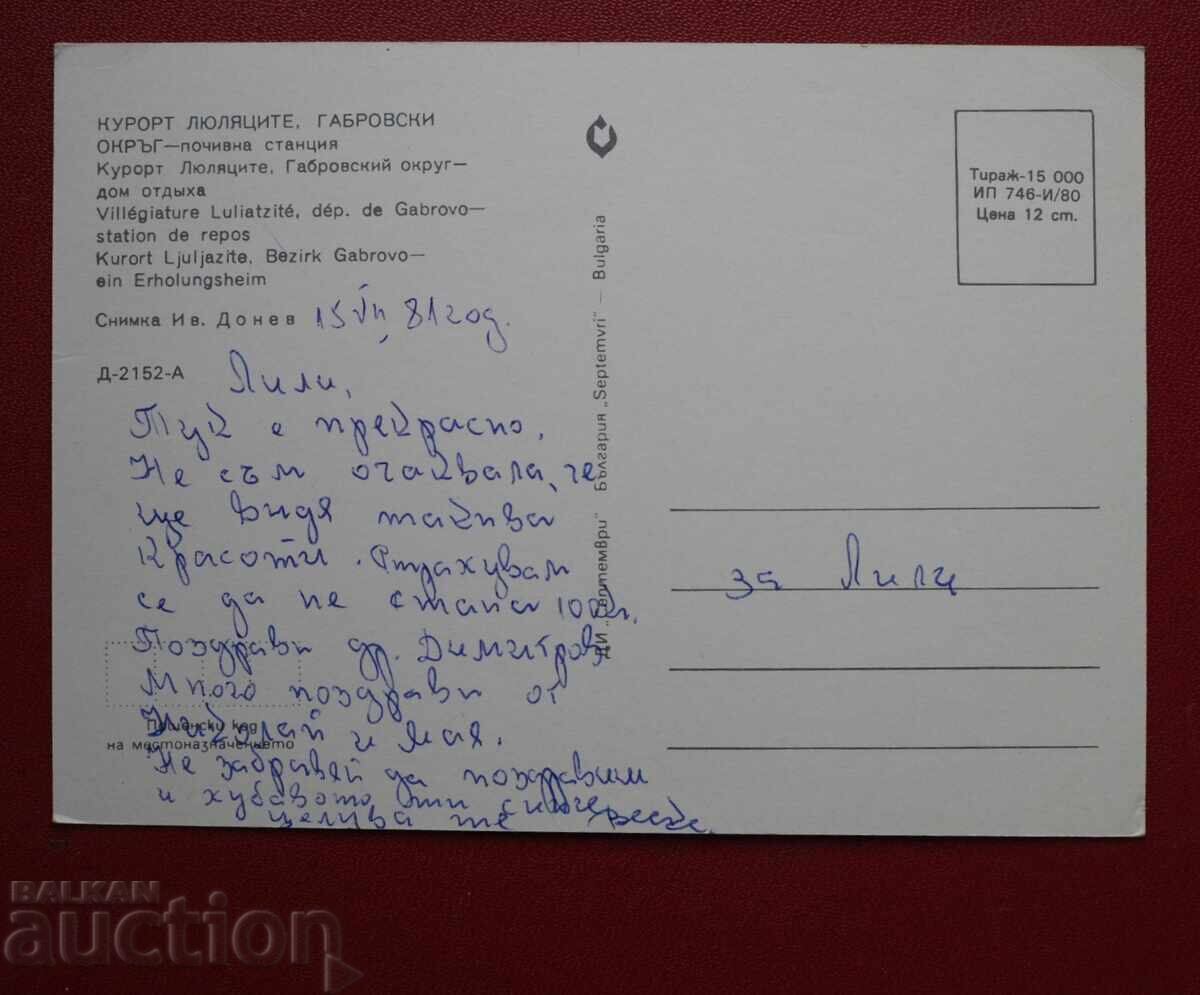 КУРОРТ ЛЮЛЯЦИТЕ, ГАБРОВСКИ
ОКРЪГ—почивна станция
Курорт Люляците, Габровский округ—
дом отдыха
Villégiature Luliatzité, dép. de Gabrovo—
station de repos
Kurort Ljuljazite, Bezirk Gabrovo—
ein Erholungsheim
Снимка Ив. Донев
15 VII, 81 год.
Д-2152-А
Лили,
Тук е прекрасно.
Не съм очаквала, че
ще видя такива
красоти. Страхувам
се да не стана 100 кг.
Поздрави др. Димитрова
Много поздрави от
Николай и Мая.
Не забравяй да поздравиш
и хубавото ти
целува те
Пощенски код
на местоназначението
ДИ „Септември" България „Septemvri" — Bulgaria
Тираж-15 000
ИП 746-И/80
Цена 12 ст.
за Лили
BALKAN
auction